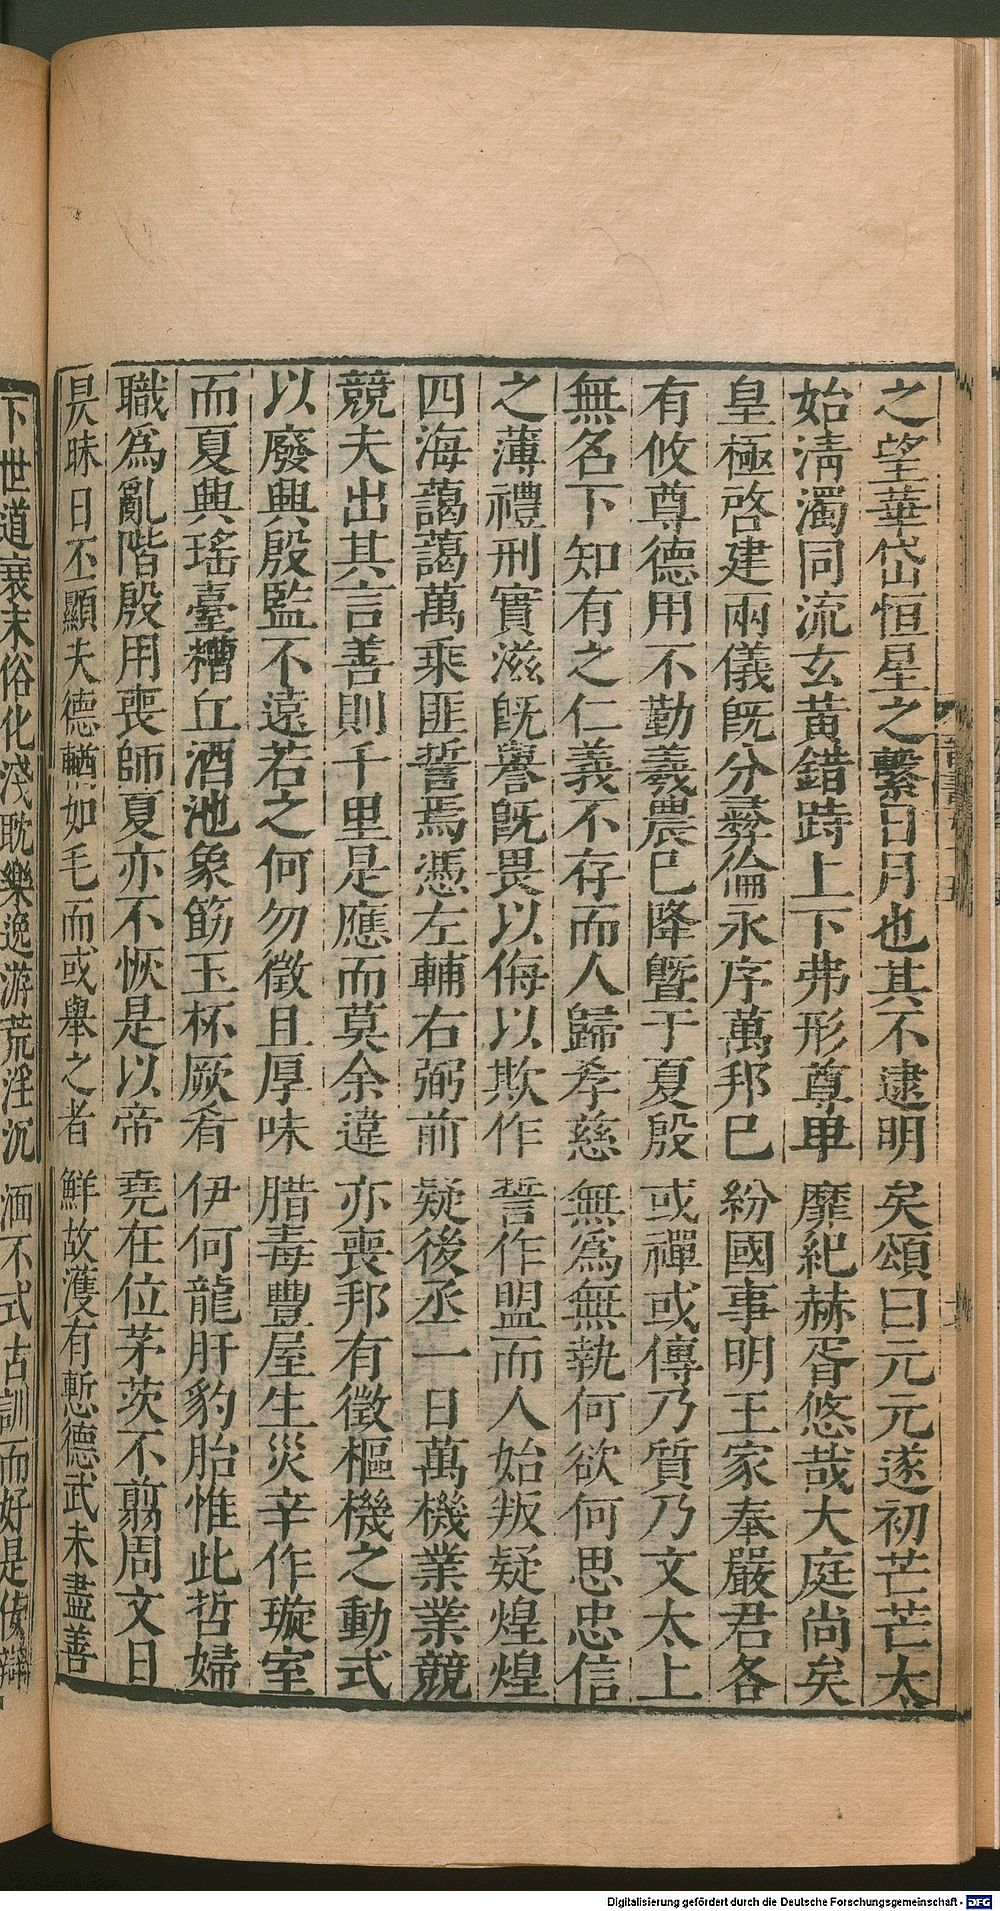 之望華岱恒星之繫日月也其不逮明矣頌曰元元遂初芒芒太
始清濁同流玄黃錯跱上下弗形尊卑靡紀赫胥悠哉大庭尚矣
皇極啓建兩儀既分彛倫永序萬邦巳紛國事明王家奉嚴君各
有攸尊德用不勤羲農巳降曁于夏殷或禪或傳乃質乃文太上
無名下知有之仁義不存而人歸孝慈無爲無執何欲何思忠信
之薄禮刑實滋旣譽旣畏以侮以欺作誓作盟而人始叛疑煌煌
四海藹藹萬乘匪誓焉憑左輔右弼前疑後丞一日萬機業業兢
兢夫出其言善則千里是應而莫余違亦喪邦有徵樞機之動式
以廢興殷監不遠若之何勿徵且厚味腊毒豐屋生災辛作璇室
而夏興瑤臺糟丘酒池象筯玉杯厥肴伊何龍肝豹胎惟此哲婦
職爲亂階殷用喪師夏亦不恢是以帝堯在位茅茨不翦周文日
昃昧旦丕顯夫德輶如毛而或舉之者鮮故濩有慙德武未盡善
下世道衰末俗化淺耽樂逸游荒淫沉湎不式古訓而好是佞辯
Digitalisierung gefördert durch die Deutsche Forschungsgemeinschaft - DFG